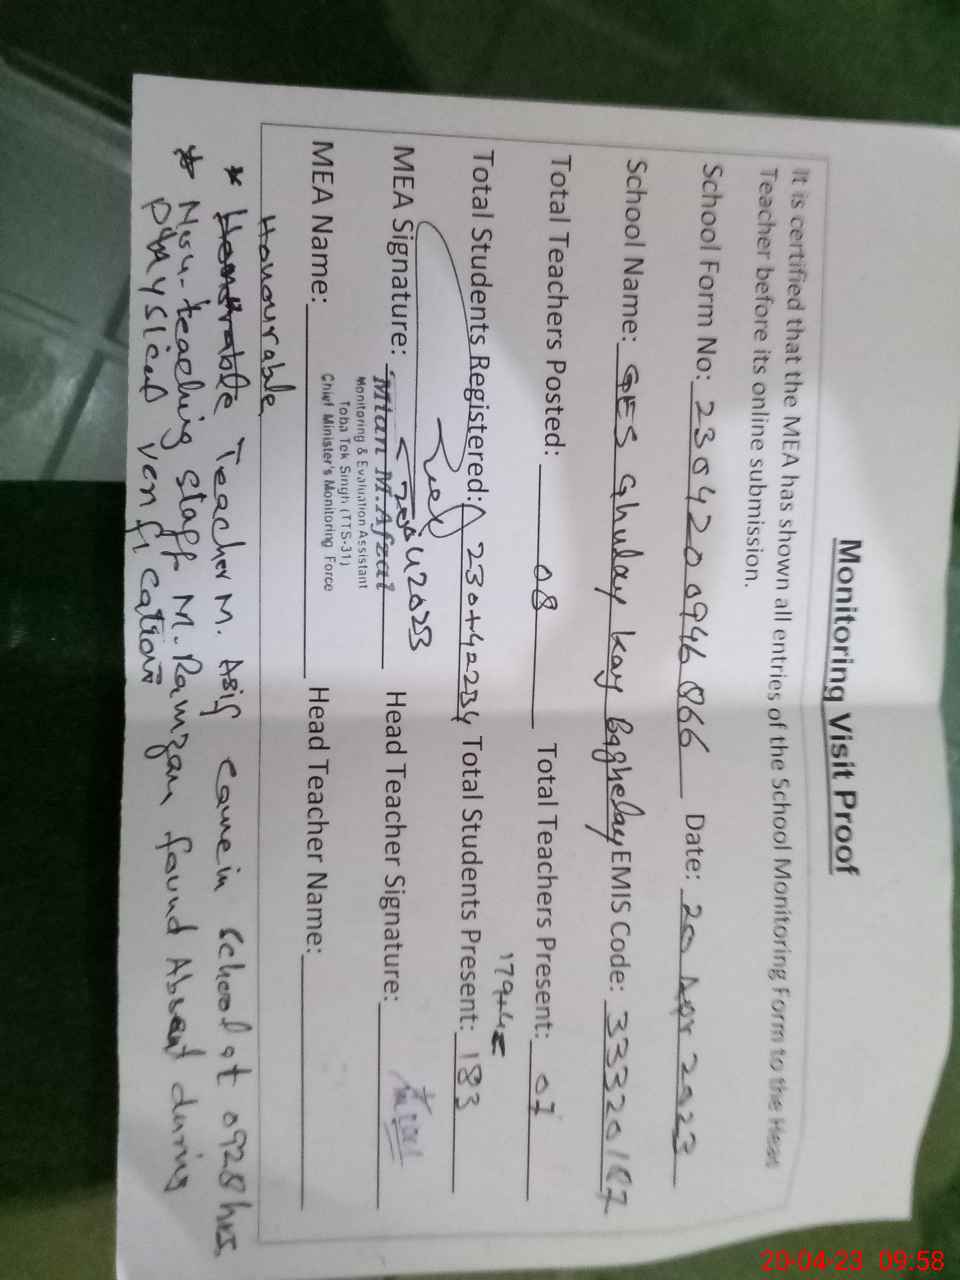 Monitoring Visit Proof
It is certified that the MEA has shown all entries of the School Monitoring Form to the Head
Teacher before its online submission.
School Form No: 230420 0946 066 Date: 20 Apr 2023
School Name: GES Ghulay Kay Baghelay EMIS Code: 33320187
Total Teachers Posted: 08 Total Teachers Present: 07
179+4=
Total Students Registered: 230+4=234 Total Students Present: 183
MEA Signature: Head Teacher Signature:
Mian M. Afzal
Monitoring & Evaluation Assistant
Toba Tek Singh (TTS-31)
Chief Minister's Monitoring Force
MEA Name: Head Teacher Name:
Honourable
* Teacher M. Asif came in school at 0928 hrs.
* Non-teaching staff M. Ramzan found Absent during
physical verification
20-04-23 09:58